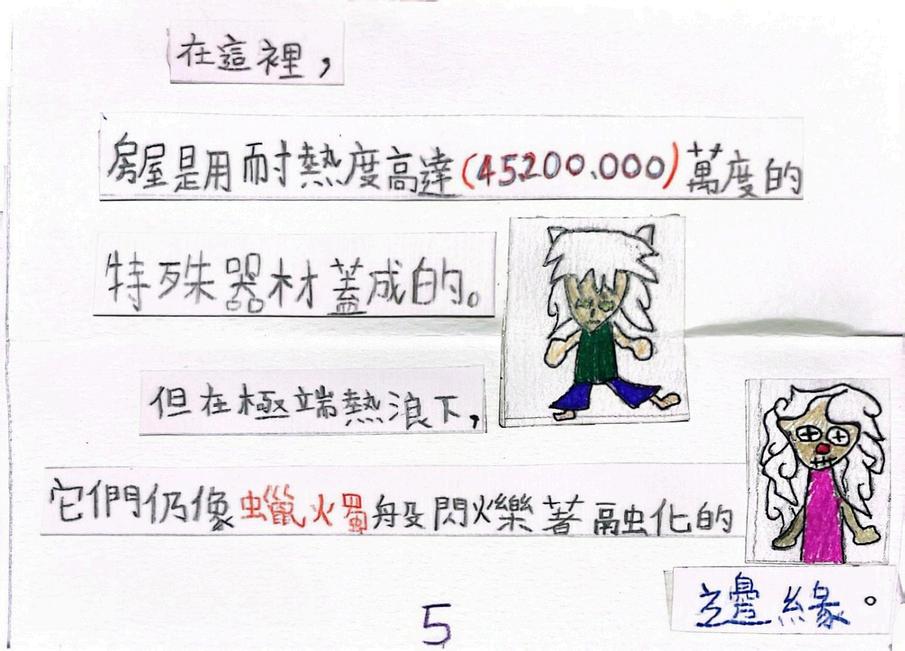 在這裡，
房屋是用耐熱度高達(45200.000)萬度的
特殊器材蓋成的。
但在極端熱浪下，
它們仍像蠟火蜀般閃爍著融化的
邊緣。
5